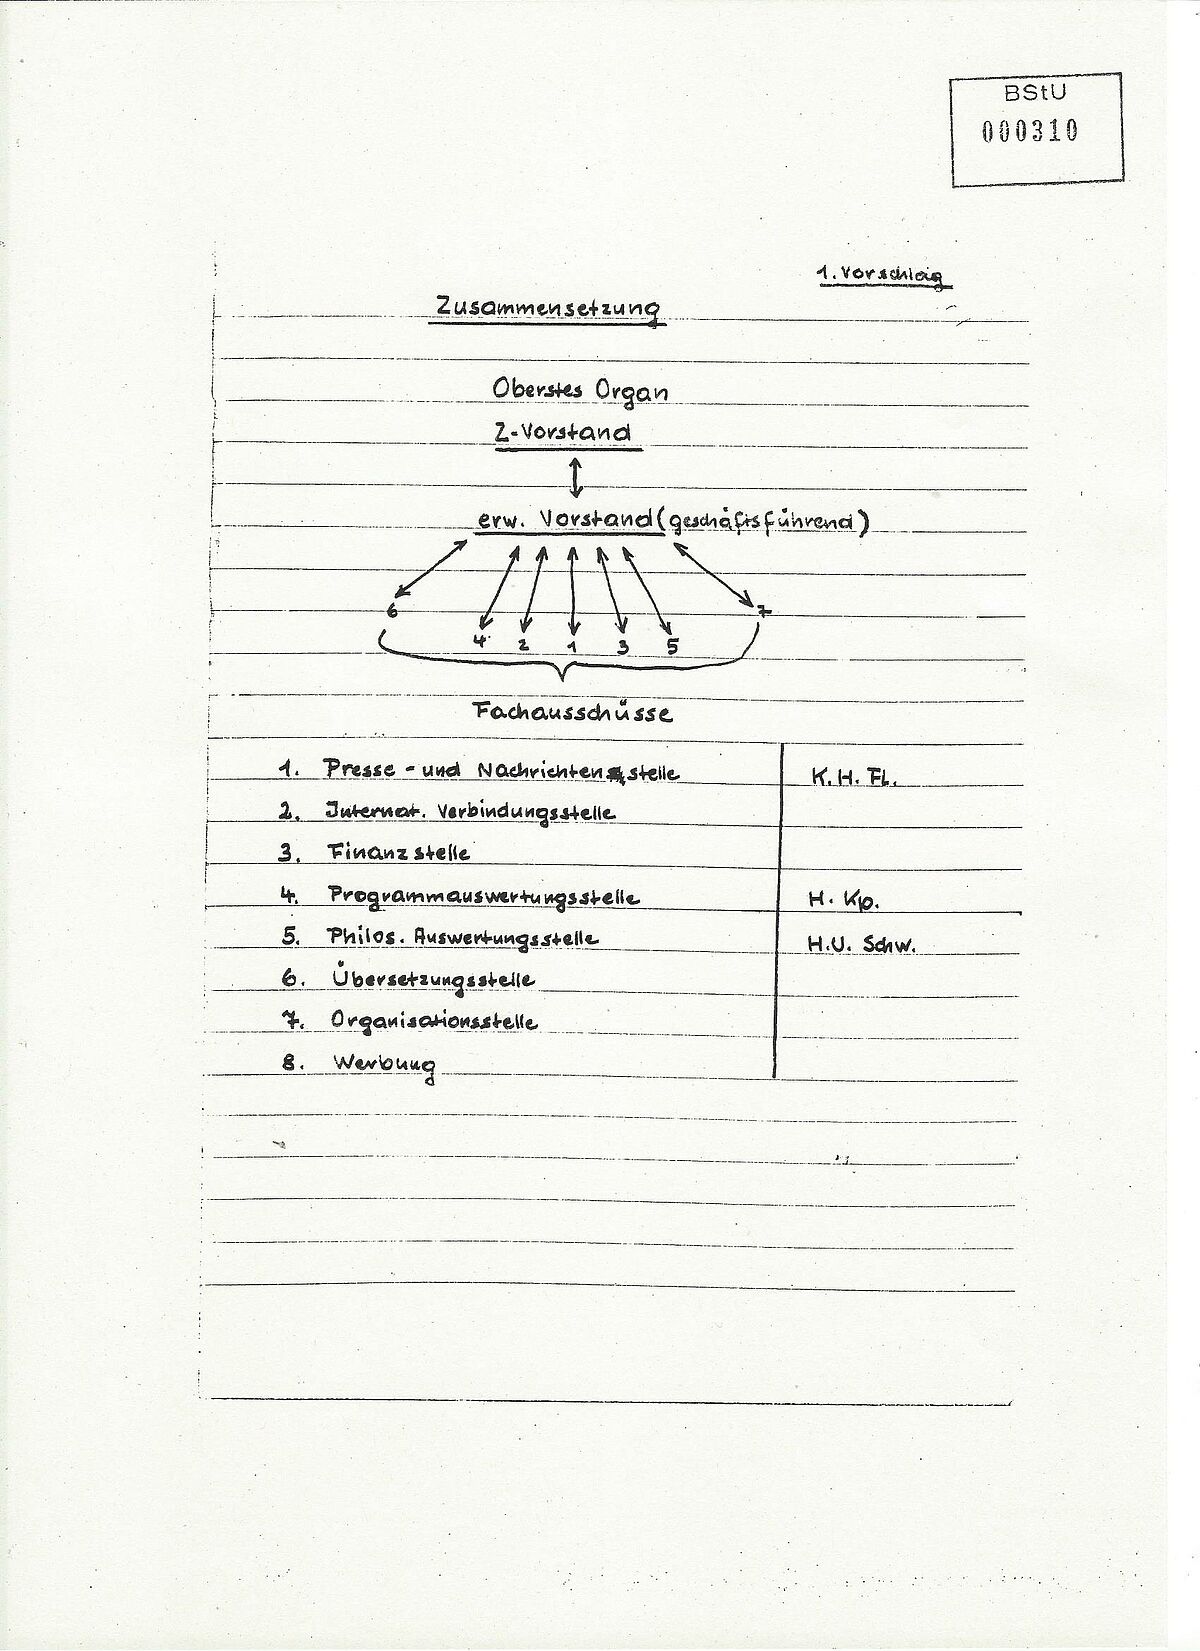 BStU
000310
1. Vorschlag
Zusammensetzung
Oberstes Organ
Z-Vorstand
erw. Vorstand (geschäftsführend)
6 7
4 2 1 3 5
Fachausschüsse
1. Presse- und Nachrichtenstelle K. H. Fl.
2. Internat. Verbindungsstelle
3. Finanzstelle
4. Programmauswertungsstelle H. Kp.
5. Philos. Auswertungsstelle H.U. Schw.
6. Übersetzungsstelle
7. Organisationsstelle
8. Werbung